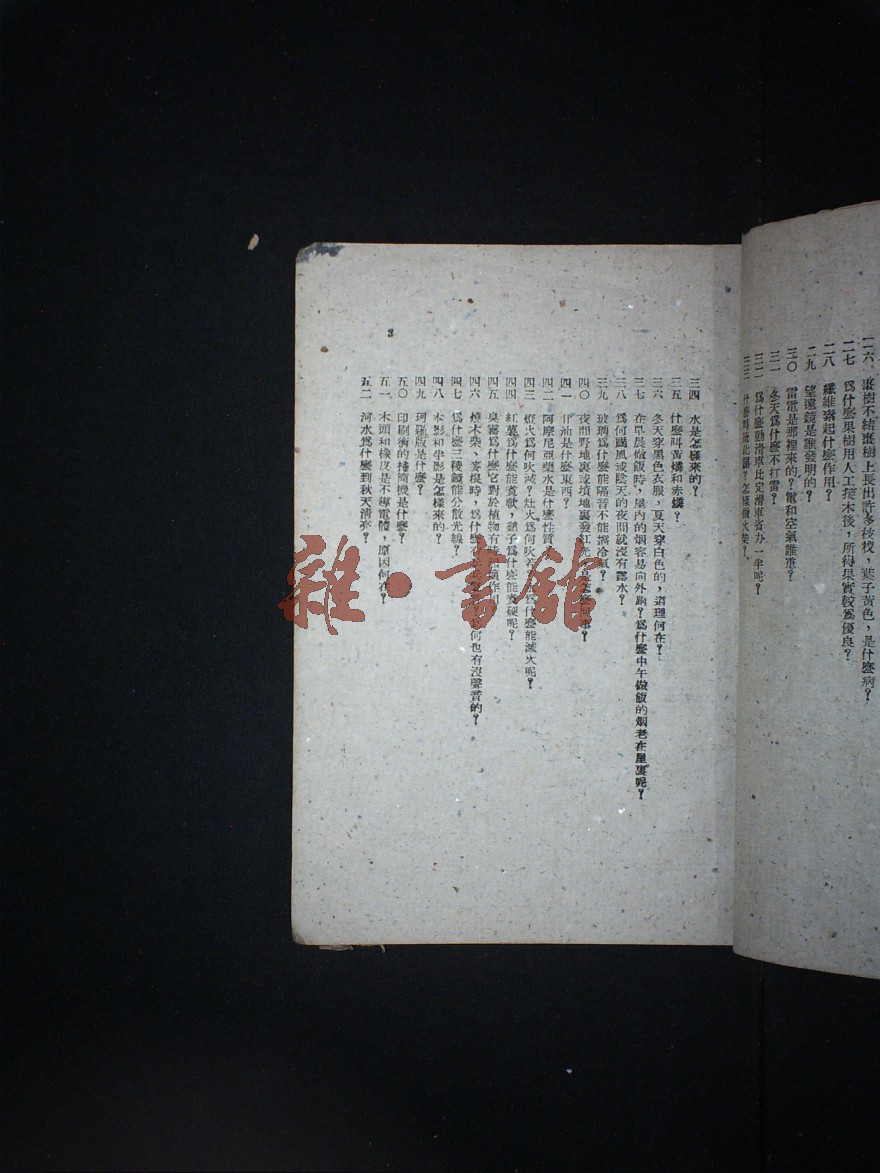 二六 棗樹不結棗樹上長出許多枝杈，葉子黃色，是什麼病？
二七 爲什麼果樹用人工接木後，所得果實較爲優良？
二八 纖維素起什麼作用？
二九 望遠鏡是誰發明的？
三〇 雷電是那裡來的？電和空氣誰重？
三一 冬天爲什麼不打雷？
三二 爲什麼動滑車比定滑車省力一半呢？
三三 什麼叫 火柴？
三四 水是怎樣來的？
三五 什麼叫黃燐和赤燐？
三六 冬天穿黑色衣服，夏天穿白色的，道理何在？
三七 在早晨做飯時，屋內的烟容易向外跑？爲什麼中午做飯的烟老在屋裏呢？
三八 爲何颳風或陰天的夜間就沒有露水？
三九 玻璃爲什麼能隔音不能擋冷氣？
四〇 夜間野地裏或墳地裏發紅光，
四一 甘油是什麼東西？
四二 阿摩尼亞藥水是什麼性質
四三 燈火爲何吹滅？灶火爲何吹着？ 爲什麼能滅火呢？
四四 紅薯爲什麼能煮軟，鷄子爲什麼能煮硬呢？
四五 臭霧爲什麼它對於植物有 作用
四六 燒木柴、麥梗時，爲什麼 何也有沒聲音的？
四七 爲什麼三稜鏡能分散光線？
四八 本影和半影是怎樣來的？
四九 珂羅版是什麼？
五〇 印刷滴的播筒機是什麼？
五一 木頭和橡皮是不導電體，原因何在？
五二 河水爲什麼到秋天清亮？
3
雜·書館